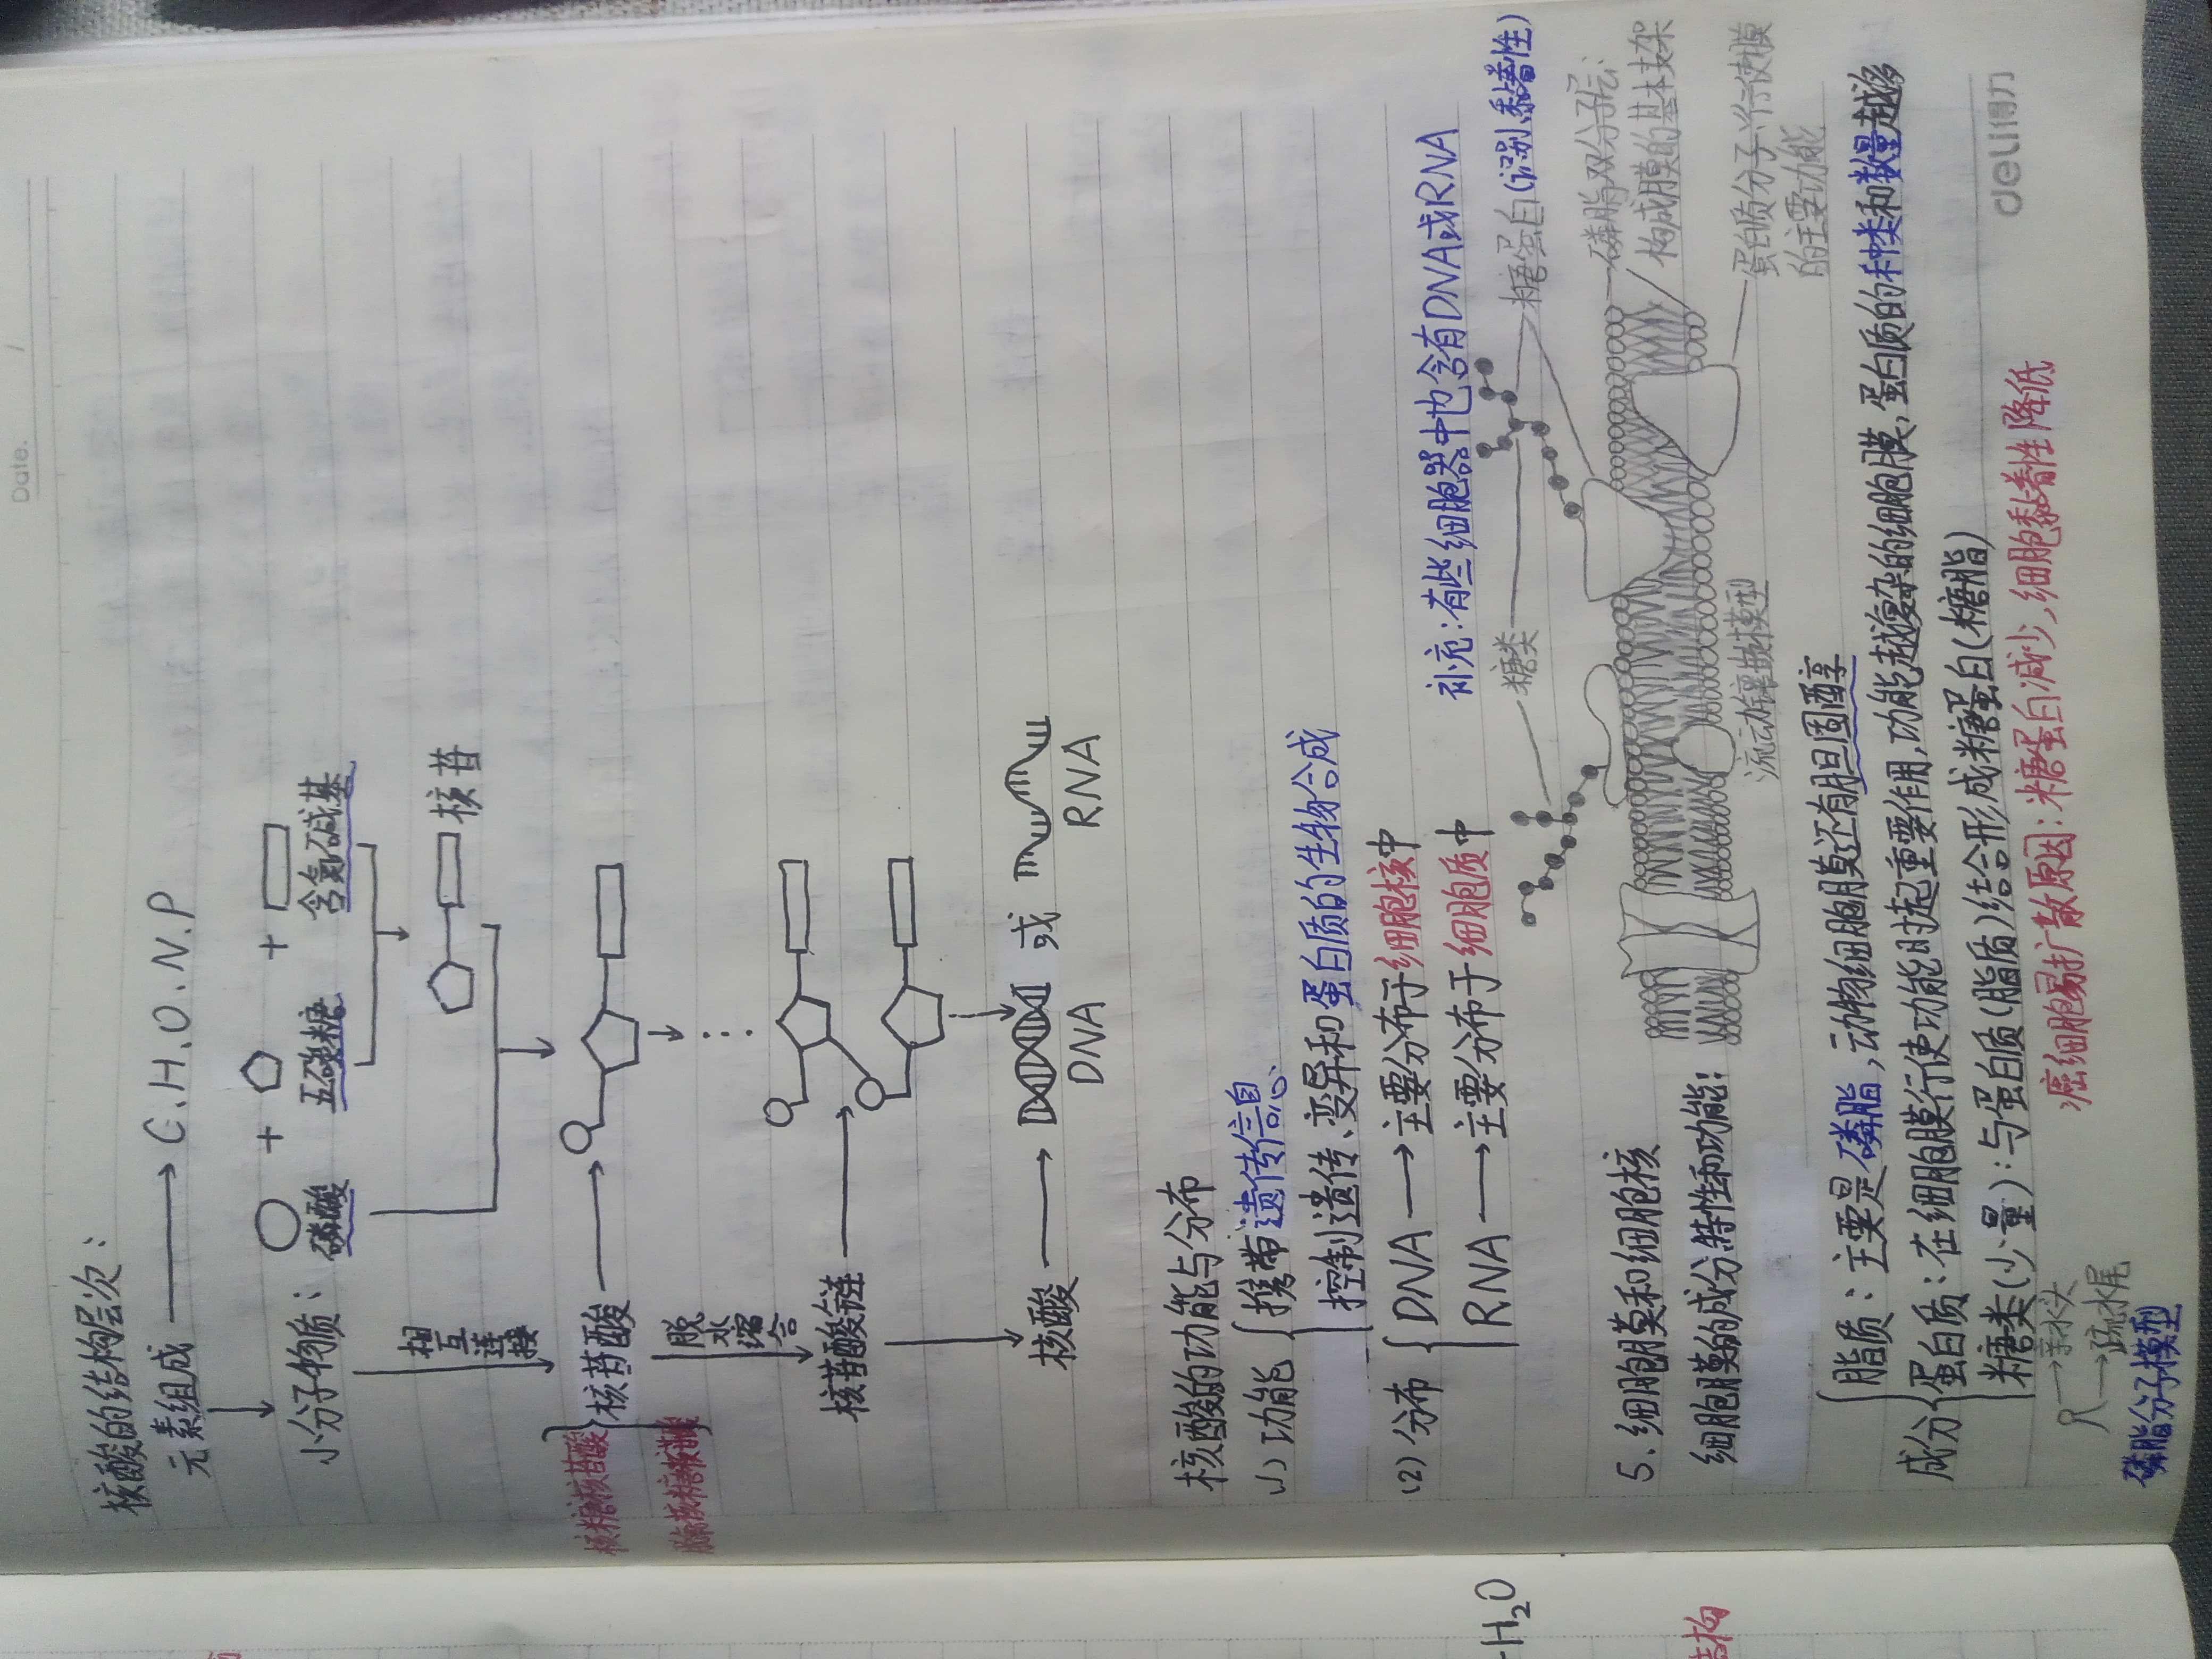 Date. /
核酸的结构层次：
元素组成 → C.H.O.N.P
小分子物质： + +
磷酸 五碳糖 含氮碱基
相互连接
核苷
核糖核苷酸
核苷酸
脱水缩合
核苷酸链
核酸 → 或
DNA RNA
核酸的功能与分布
(1) 功能 携带遗传信息
控制遗传、变异和蛋白质的生物合成
(2) 分布 DNA → 主要分布于细胞核中
RNA → 主要分布于细胞质中
补充：有些细胞器中也含有DNA或RNA
5. 细胞膜和细胞核
细胞膜的成分特性和功能：
糖类
糖蛋白(识别、黏着性)
磷脂双分子层：
构成膜的基本支架
蛋白质分子：行使膜
的主要功能
流动镶嵌模型
成分 脂质：主要是磷脂，动物细胞膜还有胆固醇
蛋白质：在细胞膜行使功能时起重要作用，功能越复杂的细胞膜，蛋白质的种类和数量越多
糖类(少量)：与蛋白质(脂质)结合形成糖蛋白(糖脂)
→亲水头
→疏水尾
磷脂分子模型
癌细胞易扩散原因：糖蛋白减少，细胞黏着性降低
deli得力
H₂O
结构